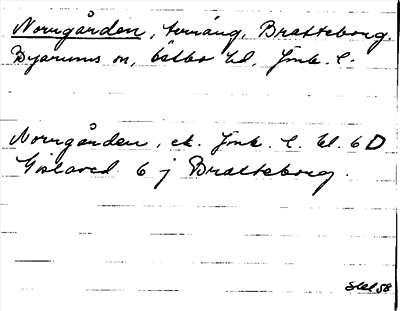 Norrgården, terräng, Bratteborg.
Byarums sn, Östbo hd, Jönk. l.
Norrgården, ek. Jönk. l. bl. 6D
Gislaved 6 j Bratteborg.
58